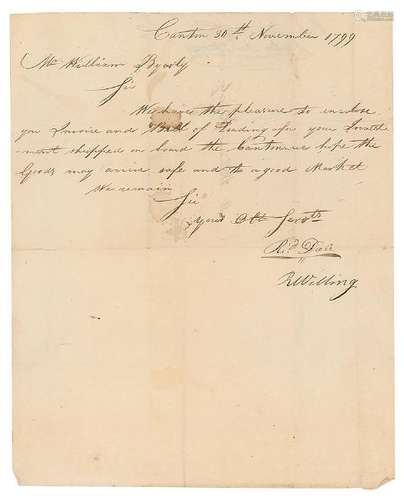 Canton 30th November 1799
Mr William Byerly
Sir
We have the pleasure to inclose
you Invoice and Bill of Lading for your Invest
ment shipped on board the Canton we hope the
Goods may arrive safe and to a good Market
We remain
Sir
Your Obt Servts
Rd Dale
R Willing